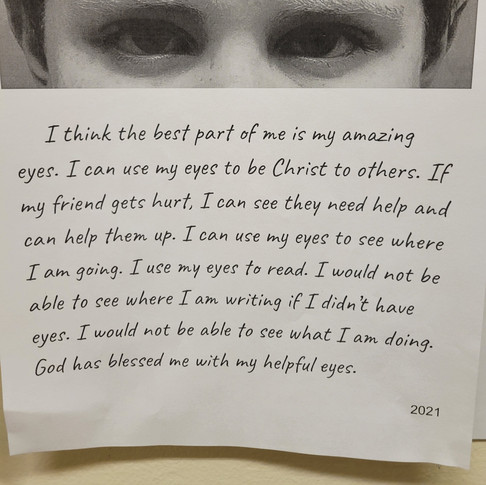 I think the best part of me is my amazing
eyes. I can use my eyes to be Christ to others. If
my friend gets hurt, I can see they need help and
can help them up. I can use my eyes to see where
I am going. I use my eyes to read. I would not be
able to see where I am writing if I didn't have
eyes. I would not be able to see what I am doing.
God has blessed me with my helpful eyes.
2021